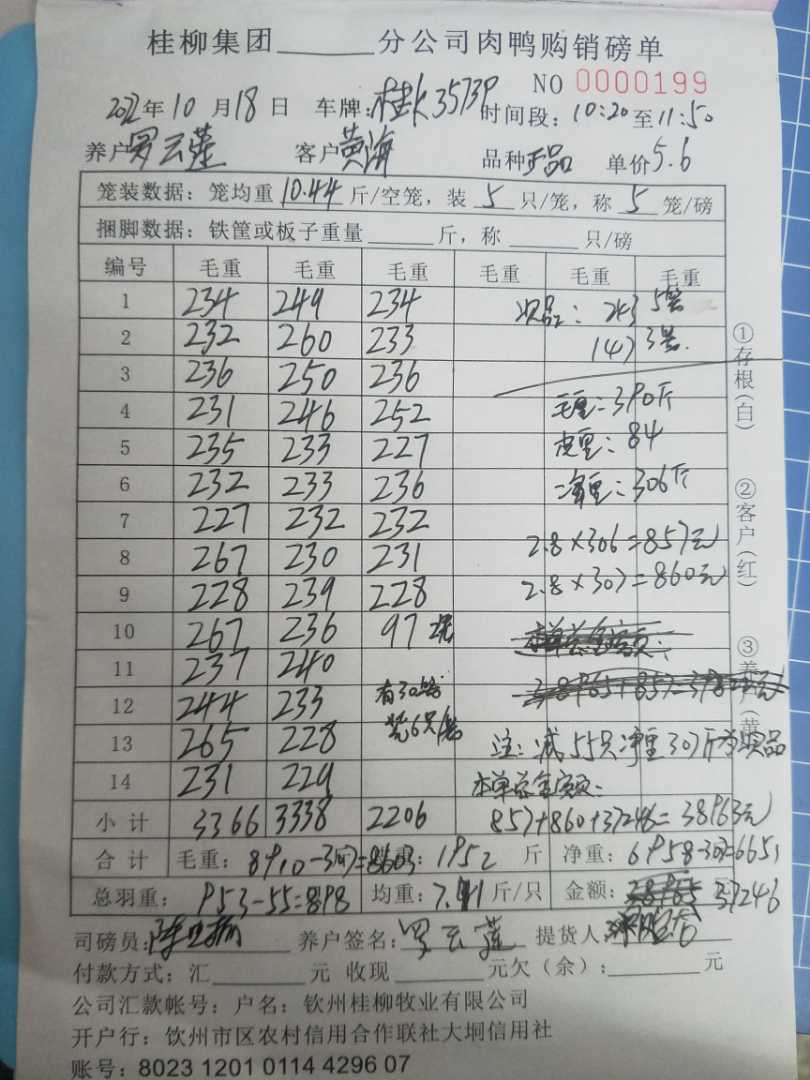 桂柳集团______分公司肉鸭购销磅单
NO 0000199
2022年10月18日 车牌:桂K3573P 时间段:10:20至11:50
养户罗云莲 客户黄海 品种正品 单价5.6
笼装数据:笼均重10.44斤/空笼,装5只/笼,称5笼/磅
捆脚数据:铁筐或板子重量______斤,称______只/磅
编号 毛重 毛重 毛重 毛重 毛重 毛重
1 234 249 234 次品: 243 5笼
2 232 260 233 147 3笼.
3 236 250 236
4 231 246 252 毛重:390斤
5 235 233 227 皮重:84
6 232 233 236 净重:306斤
7 227 232 232
8 267 230 231 2.8×306=857元
9 228 239 228 2.8×307=860元
10 267 236 97 2笼 本单总金额:
11 237 240
12 244 233 有30笼
装6只/笼
13 265 228 注:减55只净重307斤为次品
14 231 229 本单总金额:
小计 3366 3338 2206 857+860+37246=38963元
合计 毛重:8910-307=8603 皮重:1952斤 净重:6958-307=6651
总羽重:953-55=898 均重:7.41斤/只 金额:38965 37246
司磅员: 养户签名:罗云莲 提货人:
付款方式:汇______元 收现______元欠(余):______元
公司汇款帐号:户名:钦州桂柳牧业有限公司
开户行:钦州市区农村信用合作联社大垌信用社
账号:8023 1201 0114 4296 07
①存根(白)
②客户(红)
③养户(黄)